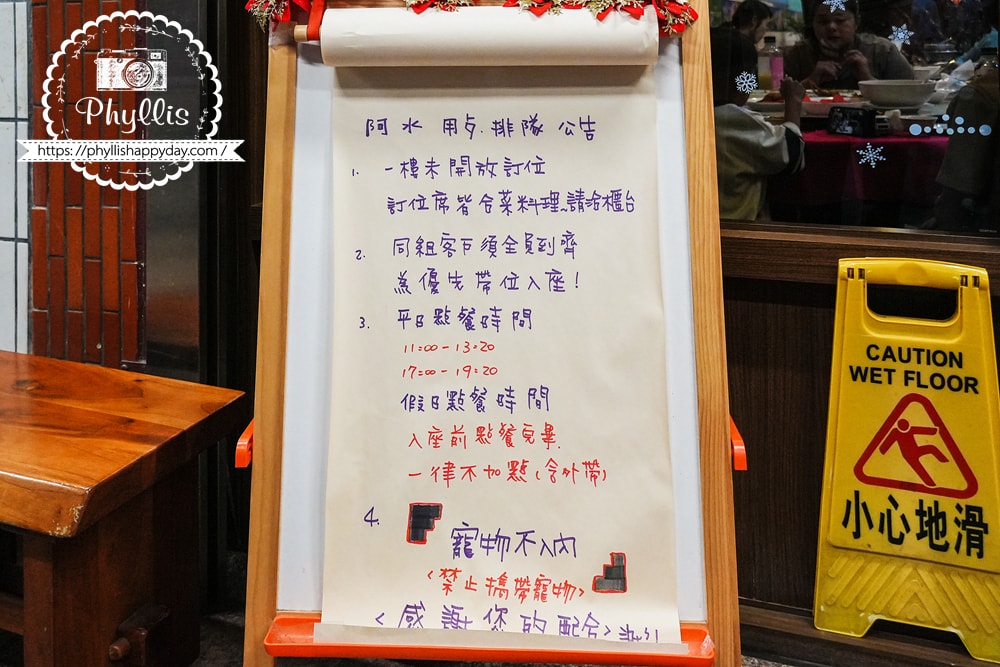 Phyllis
https://phyllishappyday.com/
阿水 排隊 公告
1. 一樓未開放訂位
訂位席皆合菜料理、請洽櫃台
2. 同組客戶須全員到齊
為優先帶位入座!
3. 平日點餐時間
11:00-13:20
17:00-19:20
假日點餐時間
入座前點餐完畢.
一律不加點(含外帶)
4.
寵物不入內
<禁止攜帶寵物>
<感謝您的配合>
CAUTION
WET FLOOR
小心地滑